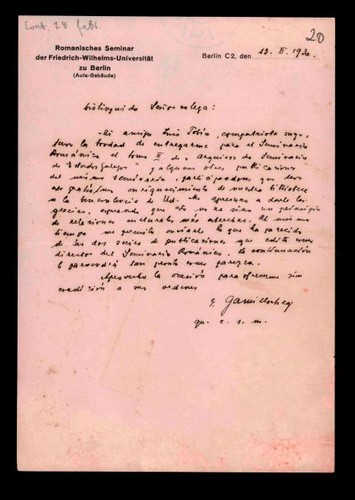 Cont. 28 feb.
20
Romanisches Seminar
der Friedrich-Wilhelms-Universität
zu Berlin
(Aula-Gebäude)
Berlin C 2, den 13. II. 1930.
Distinguido Señor colega:
Mi amigo Luis Tobío, compatriota suyo,
tuvo la bondad de entregarme para el Seminario
Románico el tomo II de "Arquivos do Seminario
de Estudos Galegos" y algunas otras publicaciones
del mismo Seminario, participándome que debo
este enriquecimiento de nuestra biblioteca
a la de Ud. Me apresuro a darle las
gracias, esperando que esto no sea sino un principio
de relaciones culturales más estrechas. Al mismo
tiempo me permito enviarle lo que ha parecido
de las dos series de publicaciones que edito como
director del Seminario Románico. La continuación
le tan pronto como parezca.
Aprovecho la ocasión para ofrecerme sin
condición a sus órdenes
E. Gamillscheg
q. e. s. m.